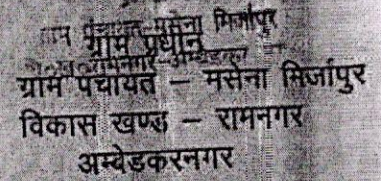 ग्राम पंचायत मसेना मिर्जापुर
ग्राम प्रधान
रामनगर अम्बेडकरनगर
ग्राम पंचायत – मसेना मिर्जापुर
विकास खण्ड – रामनगर
अम्बेडकरनगर